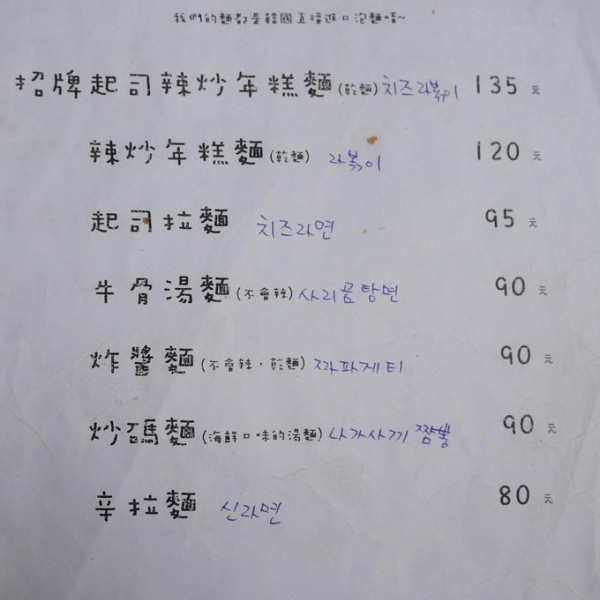 我們的麵都是韓國直接進口泡麵唷~
招牌起司辣炒年糕麵(乾麵) 치즈라볶이 135元
辣炒年糕麵(乾麵) 라볶이 120元
起司拉麵 치즈라면 95元
牛骨湯麵(不會辣) 사리곰탕면 90元
炸醬麵(不會辣,乾麵) 짜파게티 90元
炒碼麵(海鮮口味的湯麵) 나가사끼 짬뽕 90元
辛拉麵 신라면 80元